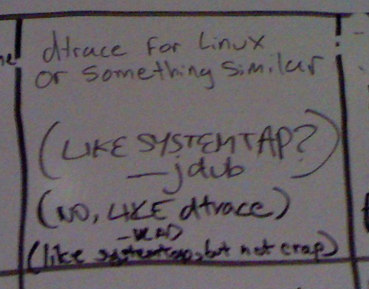 dtrace for Linux
or something similar
(LIKE SYSTEMTAP?)
—jdub
(NO, LIKE dtrace)
—VLAD
(like systemtap, but not crap)